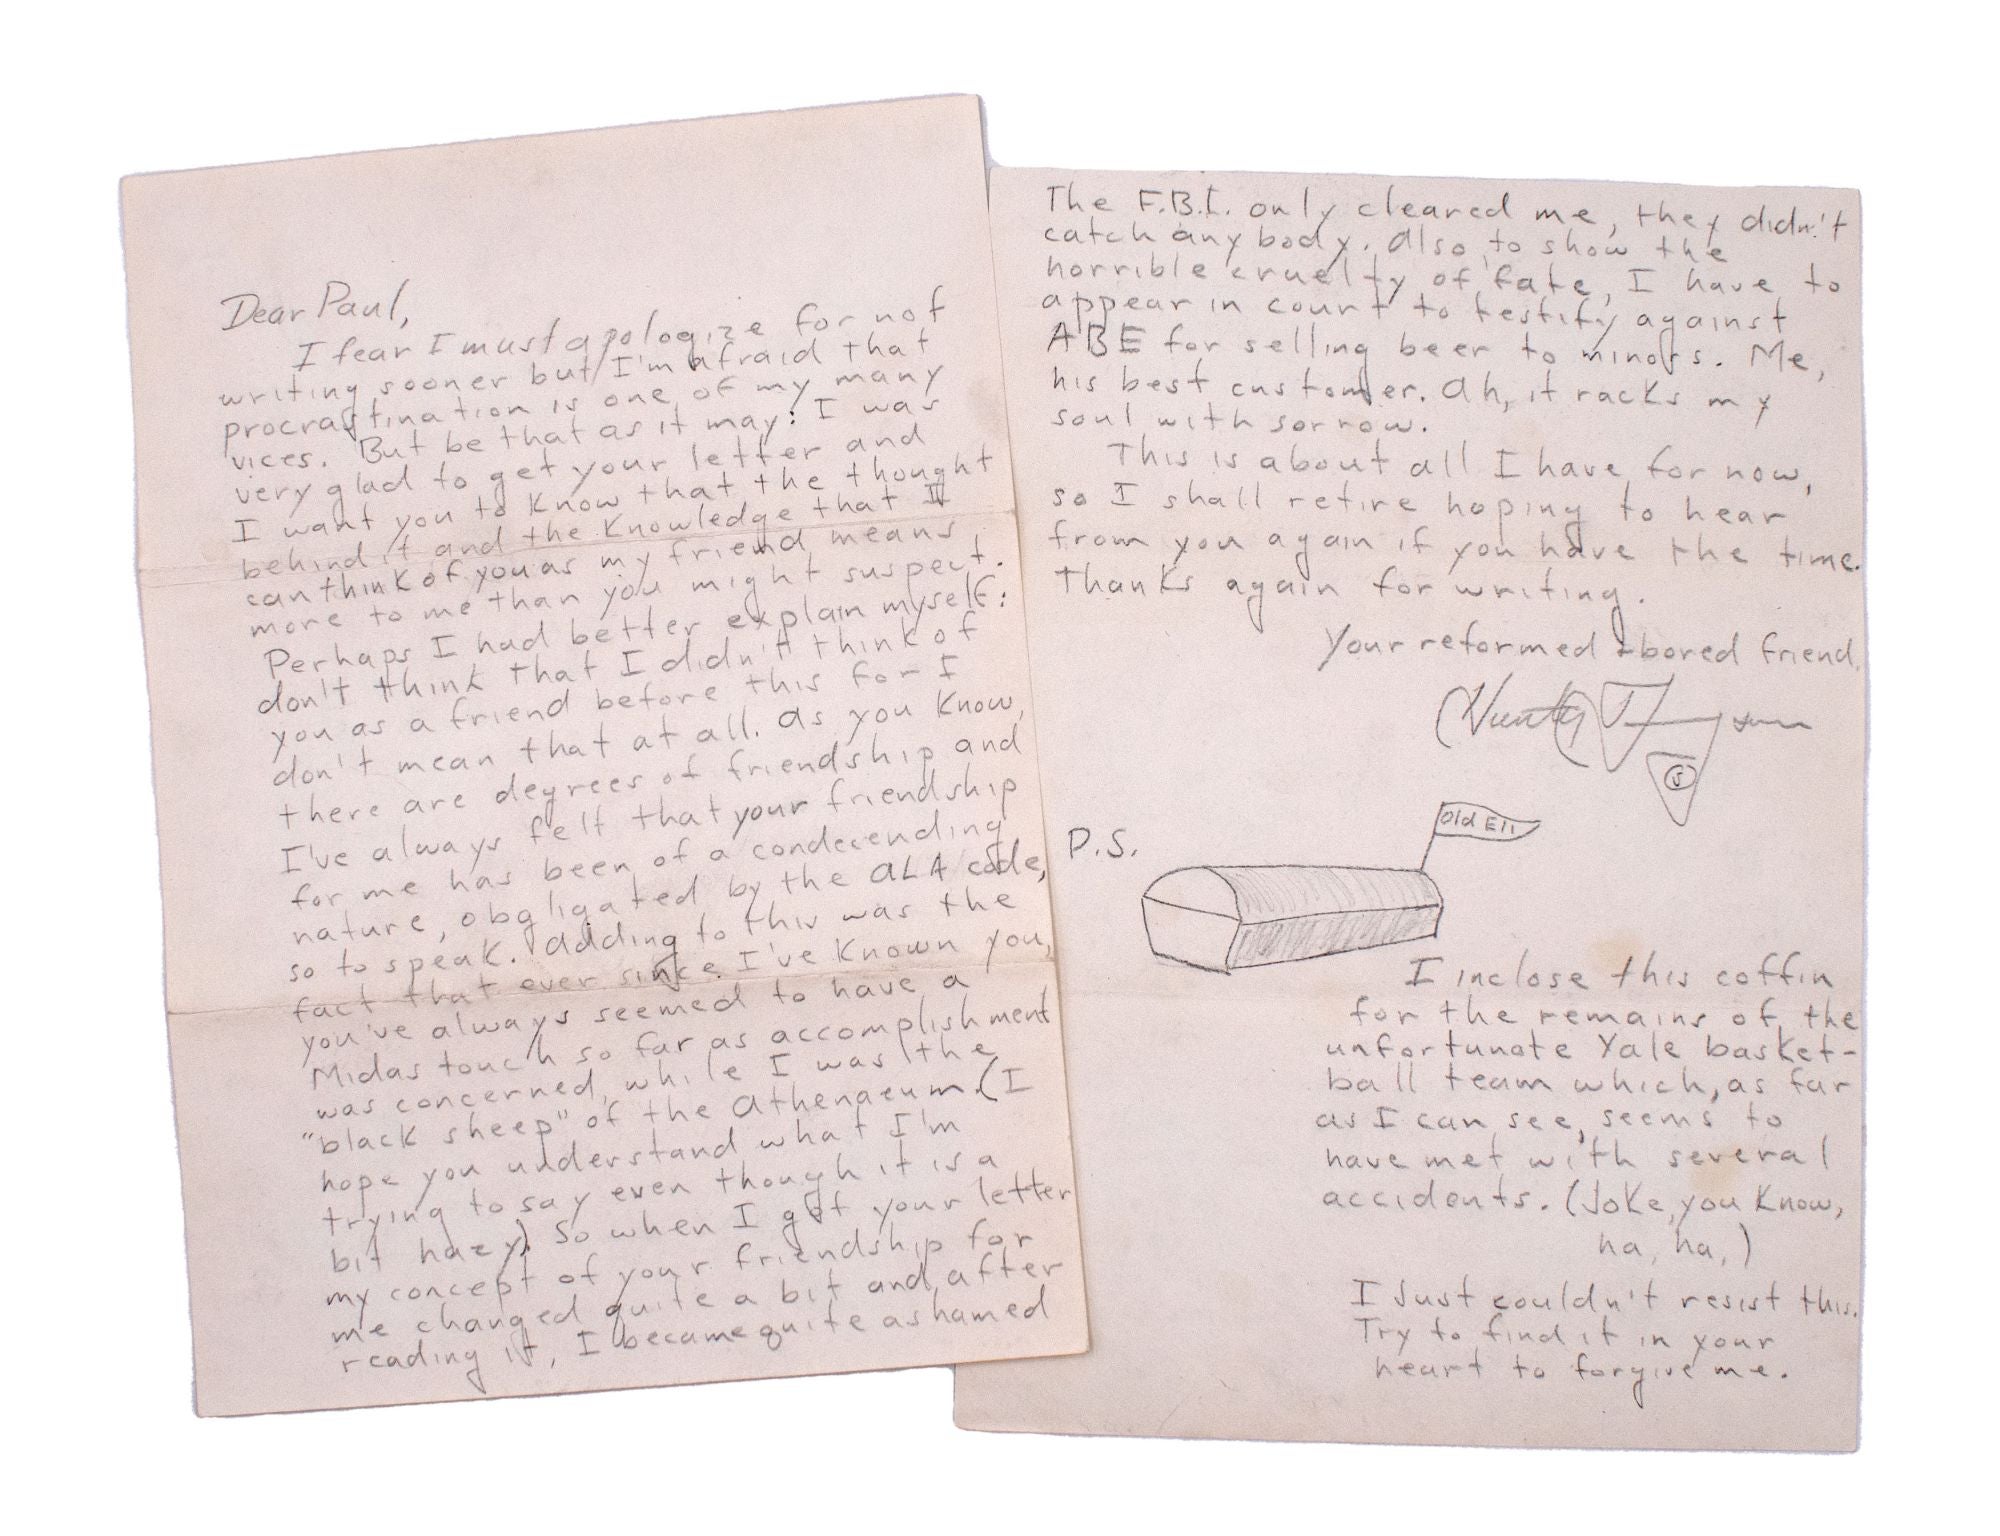 Dear Paul,
I fear I must apologize for not
writing sooner but I'm afraid that
procrastination is one of my many
vices. But be that as it may: I was
very glad to get your letter and
I want you to know that the thought
behind it and the knowledge that I
can think of you as my friend means
more to me than you might suspect.
Perhaps I had better explain myself:
don't think that I didn't think of
you as a friend before this for I
don't mean that at all. As you know,
there are degrees of friendship and
I've always felt that your friendship
for me has been of a condecending
nature, obgligated by the ALA code,
so to speak. Adding to this was the
fact that ever since I've known you,
you've always seemed to have a
Midas touch so far as accomplishment
was concerned, while I was the
"black sheep" of the Athenaeum. (I
hope you understand what I'm
trying to say even though it is a
bit hazy). So when I got your letter
my concept of your friendship for
me changed quite a bit and, after
reading it, I became quite ashamed
The F.B.I. only cleared me, they didn't
catch anybody. Also, to show the
horrible cruelty of fate, I have to
appear in court to testify against
ABE for selling beer to minors. Me,
his best customer. Ah, it racks my
soul with sorrow.
This is about all I have for now,
so I shall retire hoping to hear
from you again if you have the time.
Thanks again for writing.
Your reformed + bored friend,
Hunty
5
Old Eli
P.S.
I inclose this coffin
for the remains of the
unfortunate Yale basket-
ball team which, as far
as I can see, seems to
have met with several
accidents. (Joke, you know,
ha, ha,)
I just couldn't resist this.
Try to find it in your
heart to forgive me.